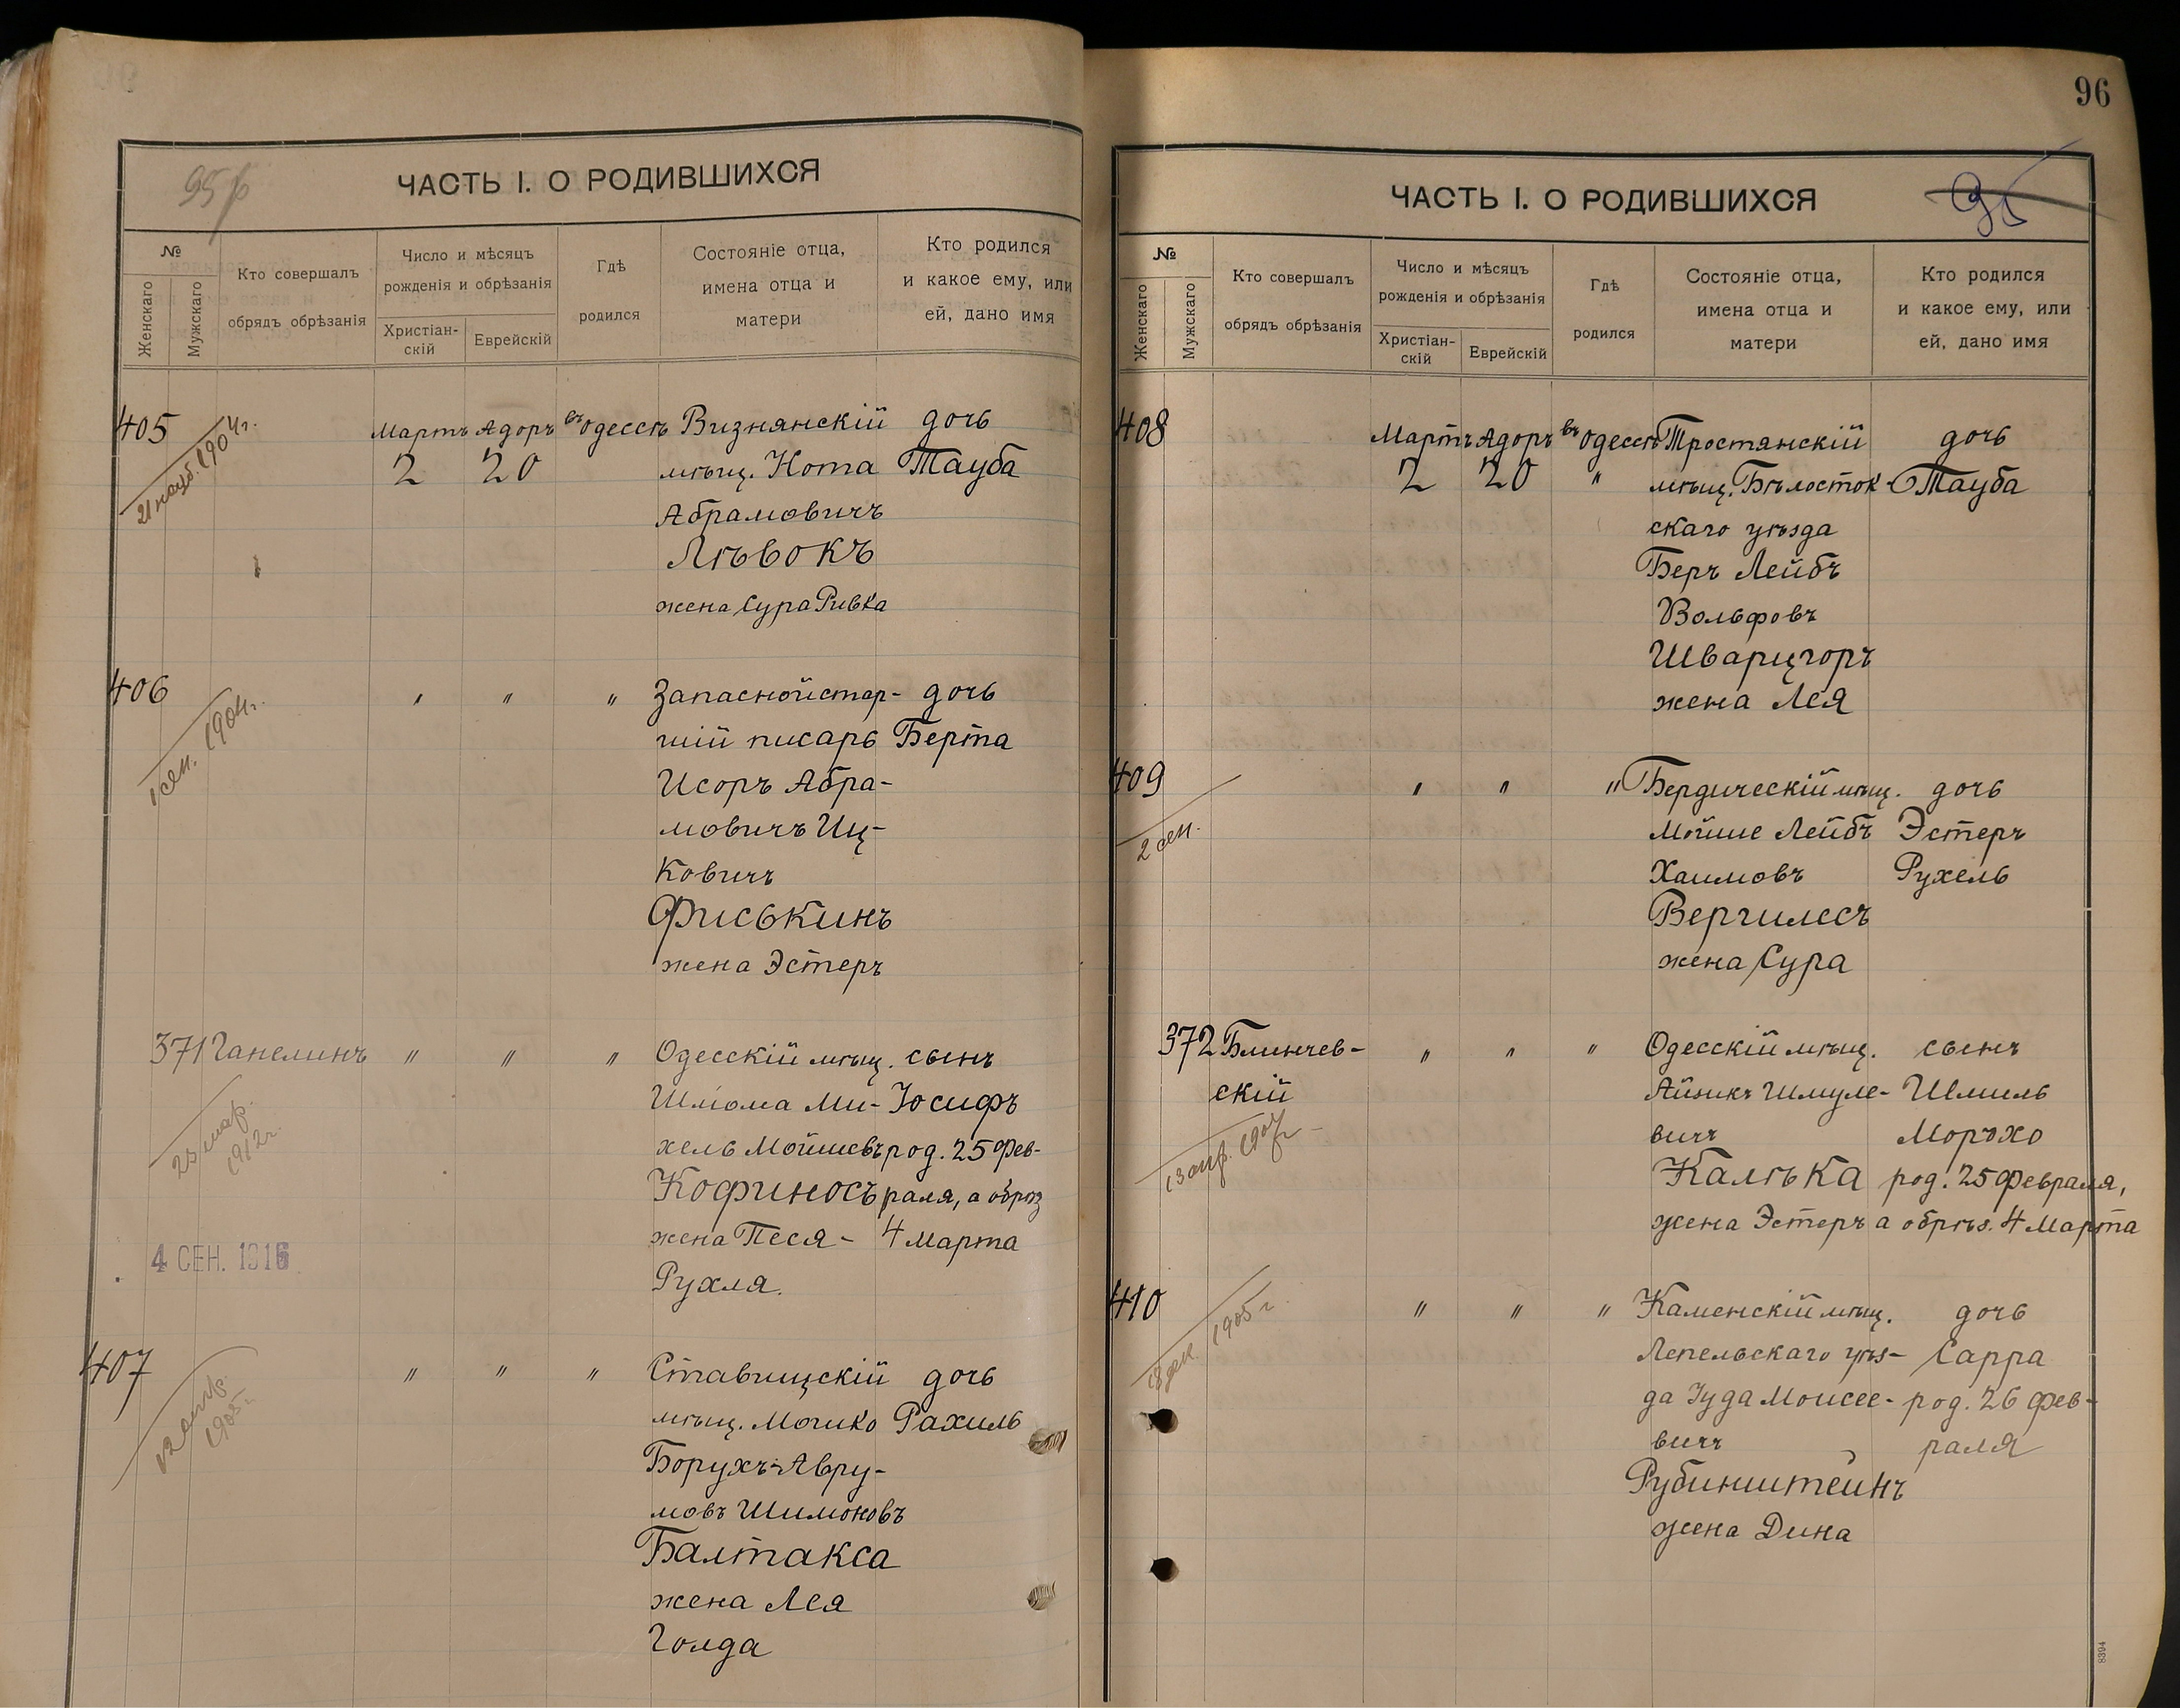 95 р
ЧАСТЬ I. О РОДИВШИХСЯ
№
Женскаго
Мужскаго
Кто совершалъ
обрядъ обрѣзанія
Число и мѣсяцъ
рожденія и обрѣзанія
Христіан-
скій
Еврейскій
Гдѣ
родился
Состояніе отца,
имена отца и
матери
Кто родился
и какое ему, или
ей, дано имя
405 Мартъ Адоръ въ Одессѣ Визнянскій дочь
21 1904 г.
2 20 мѣщ. Нота Тауба
Абрамовичъ
Лѣвокъ
жена Сура Ривка
406 " " " Запасной стар- дочь
1 сен. 1904 г.
шій писарь Берта
Исоръ Абра-
мовичъ Иц-
ковичъ
Фиськинъ
жена Эстеръ
371 Ганелинъ " " " Одесскій мѣщ. сынъ
23 мар.
1912 г.
Шлiома Ми- Іосифъ
хель Мойшевъ род. 25 Фев-
Кофиносъ раля, а обрѣз
жена Песя- 4 Марта
4 СЕН. 1916
Рухля.
407 " " " Ставищскій дочь
12
1905 г.
мѣщ. Мошко Рахиль
Борухъ-Авру-
мовъ Шимоновъ
Балтакса
жена Лея
Голда
96
95
ЧАСТЬ I. О РОДИВШИХСЯ
№
Женскаго
Мужскаго
Кто совершалъ
обрядъ обрѣзанія
Число и мѣсяцъ
рожденія и обрѣзанія
Христіан-
скій
Еврейскій
Гдѣ
родился
Состояніе отца,
имена отца и
матери
Кто родился
и какое ему, или
ей, дано имя
408 Мартъ Адоръ въ Одессѣ Тростянскій дочь
2 20 " мѣщ. Бѣлосток- Тауба
скаго уѣзда
Беръ Лейбъ
Вольфовъ
Шварцгоръ
жена Лея
409 " " " Бердическій мѣщ. дочь
2 сен.
Мойше Лейбъ Эстеръ
Хаимовъ Рухель
Вергилесъ
жена Сура
372 Блинчев- " " " Одесскій мѣщ. сынъ
скій Айзикъ Шмуле- Шлиль
13 апр. 1907 г
вичъ Мордхо
Калѣка род. 25 Февраля,
жена Эстеръ а обрѣз. 4 Марта
410 " " " Каменскій мѣщ. дочь
1905 г.
Лепельскаго уѣз- Сарра
да Іуда Моисее- род. 26 Фев-
вичъ раля
Рубинштейнъ
жена Дина
8394